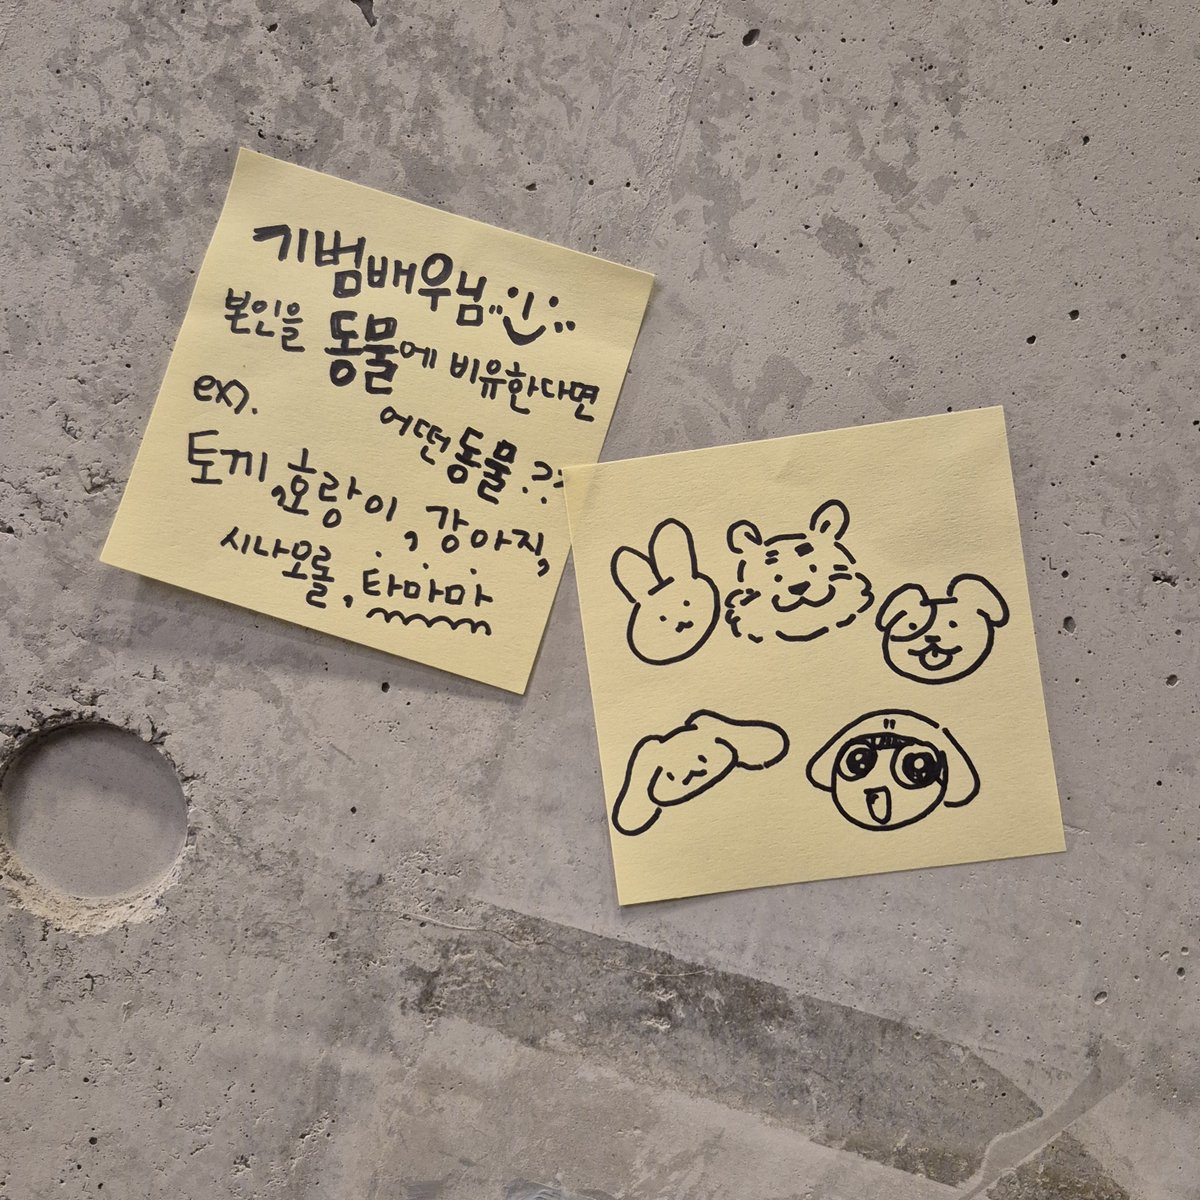 기범배우님
본인을 동물에 비유한다면
ex). 어떤동물??
토끼, 호랑이, 강아지,
시나모롤, 타마마